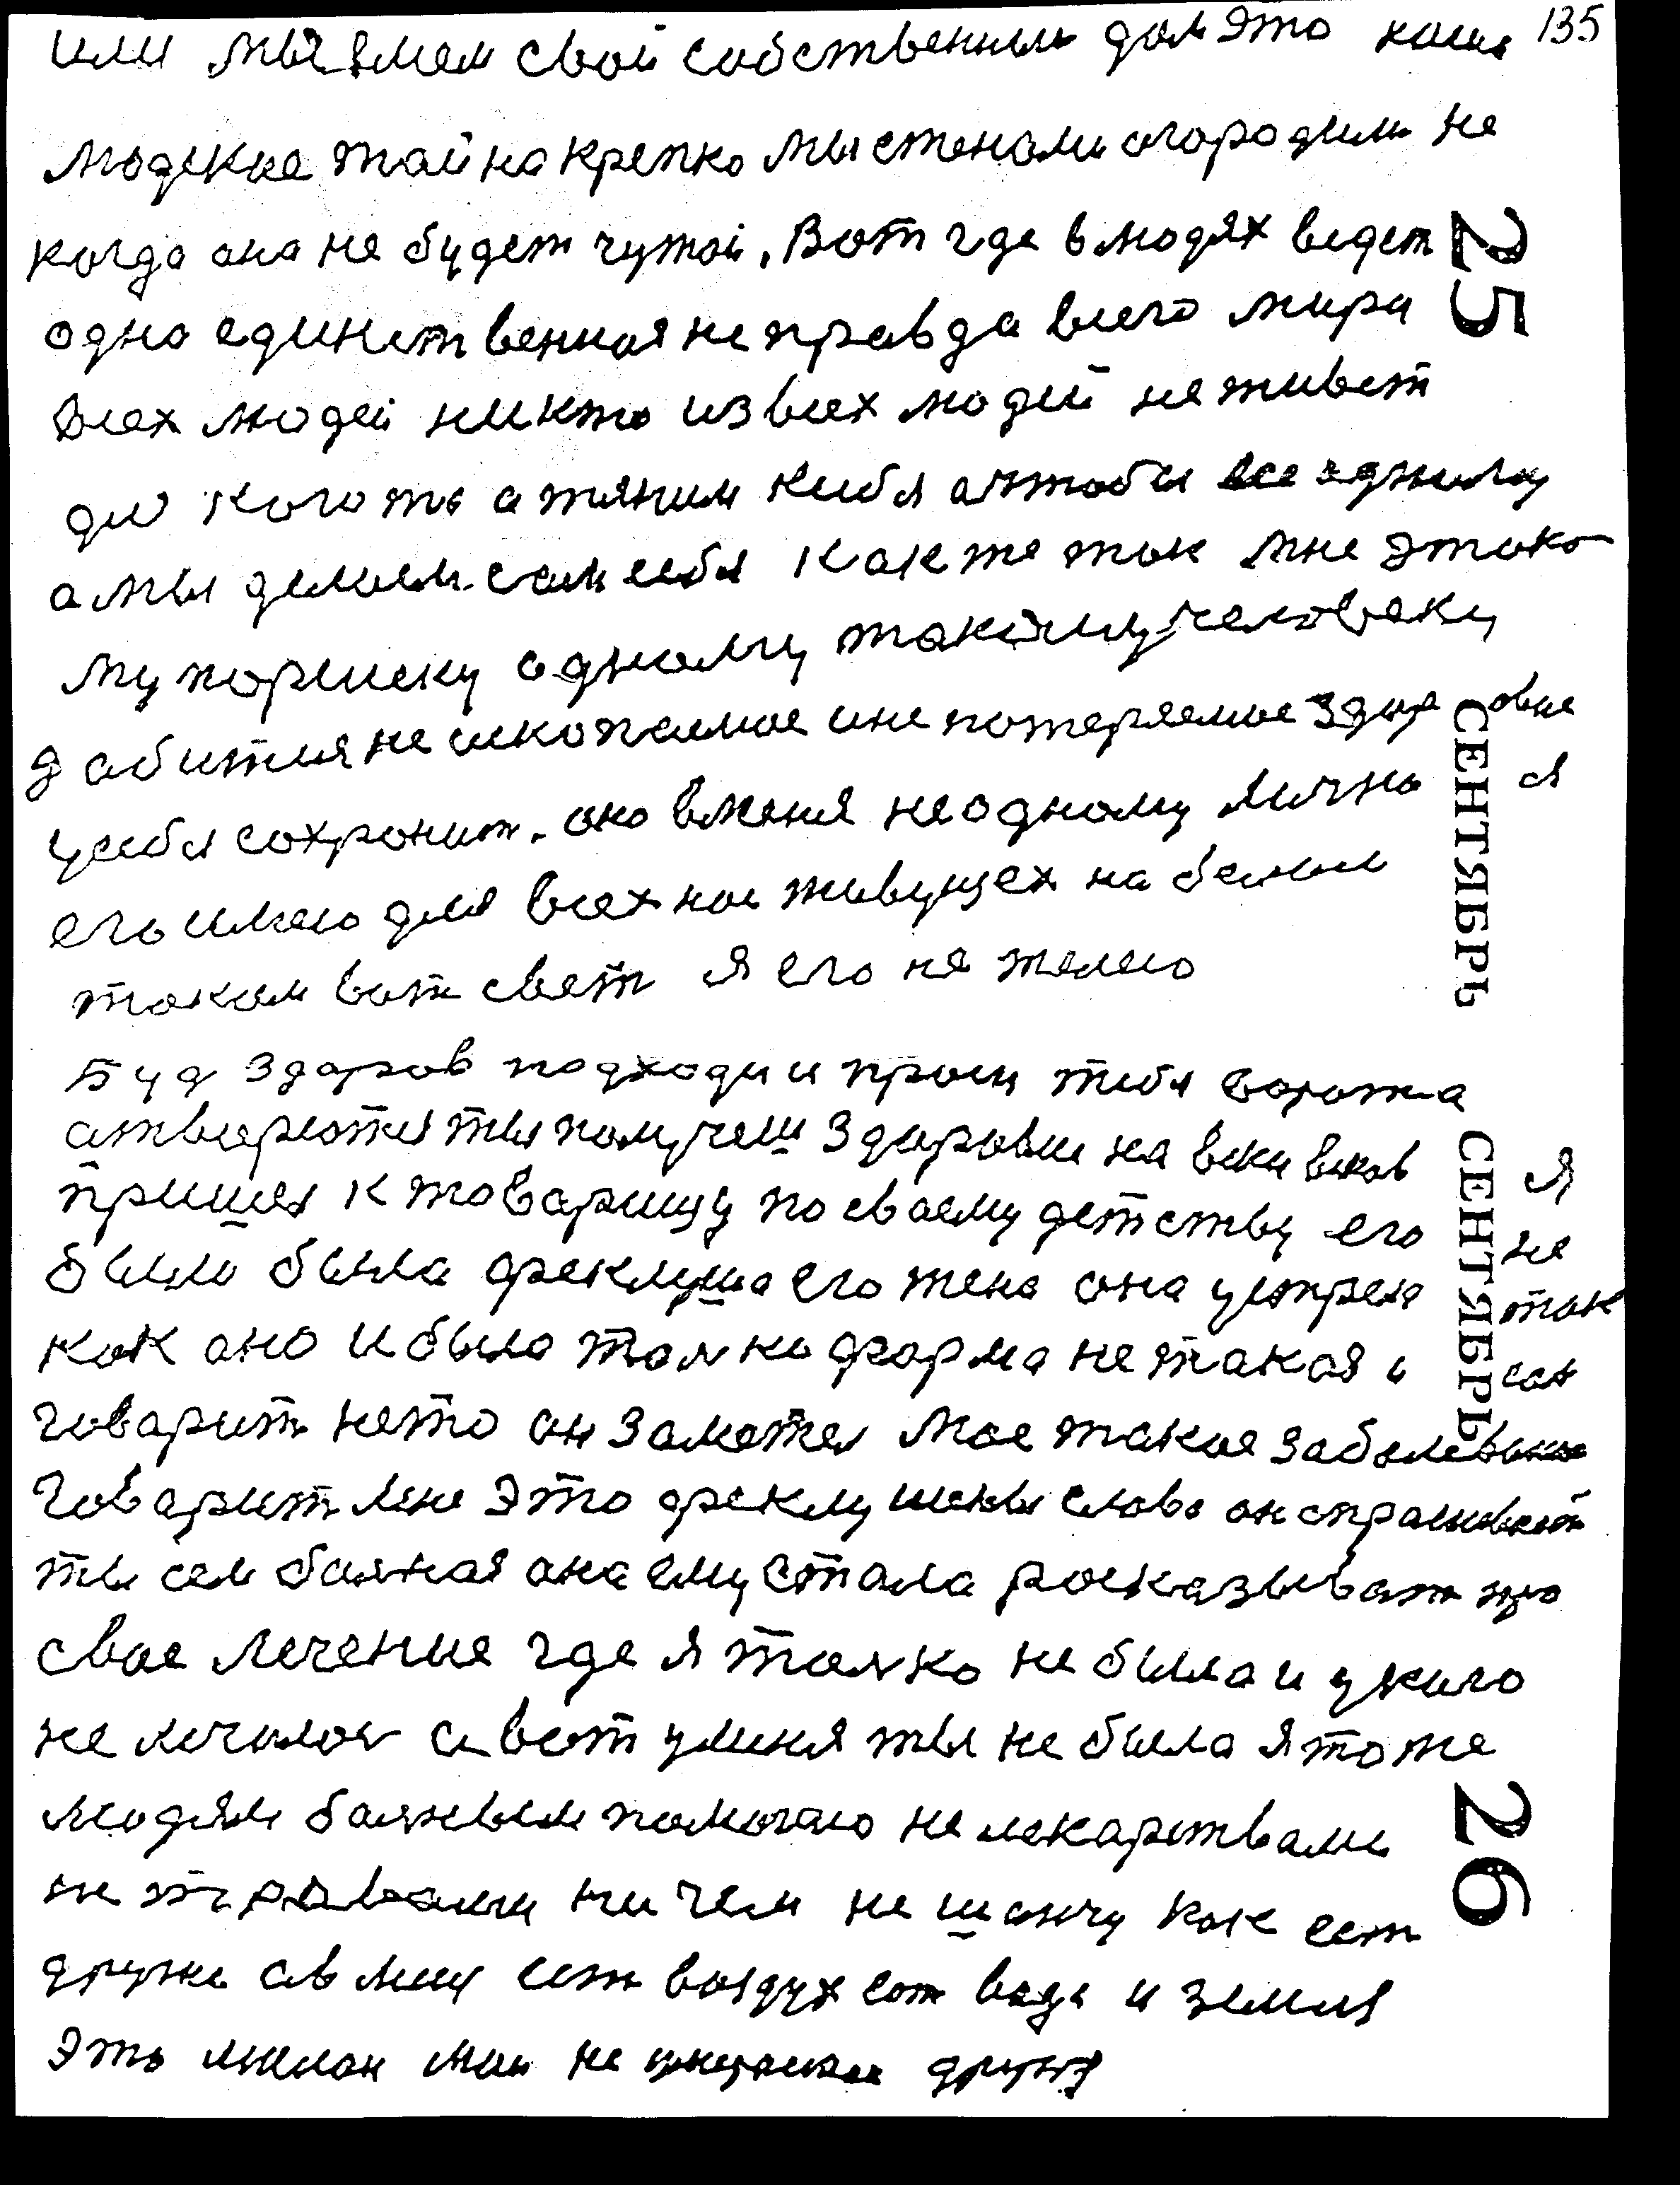 135
или мы имеем свой собственным дом это наше
людские тайна крепко мы стенами огородили не
когда она не будет чужой, Вот где в людях ведет
одна единственная не правда всего мира
всех людей никто из всех людей не живет
для кого то а тяним на себя а чтобы все одному
а мы делаем сам себя как же так мне этако
му поршеку одному такому человеку
добится не ископаемое и не потеряемое здоровие
у себя сохронит. оно в меня не одному лично я
его имею для всех нас живущех на белом
таком вот свет я его не жалею
Буд здоров подходи и проси тебя ворота
атвворотся ты получеш здоровие на веки веков я
пришел к товарищу по своему детству его не
было была фреклуша его жена она устреля так
как оно и было толко форма не такая и сам
говарит нето он заметел мое такое заболевание
говарит мне это фреклушены слова он спрашивает
ты сем болная она ему стала росказыват про
свое лечение где я толко не была и у кого
не лечалос а вот у меня ты не была я тоже
людям болным помогаю не лекарствами
не травами ни чем не шанчу как ест
дружи ав лису ест воздух ест вода и земля
это милаи маи не друзя
25
СЕНТЯБРЬ
СЕНТЯБРЬ
26